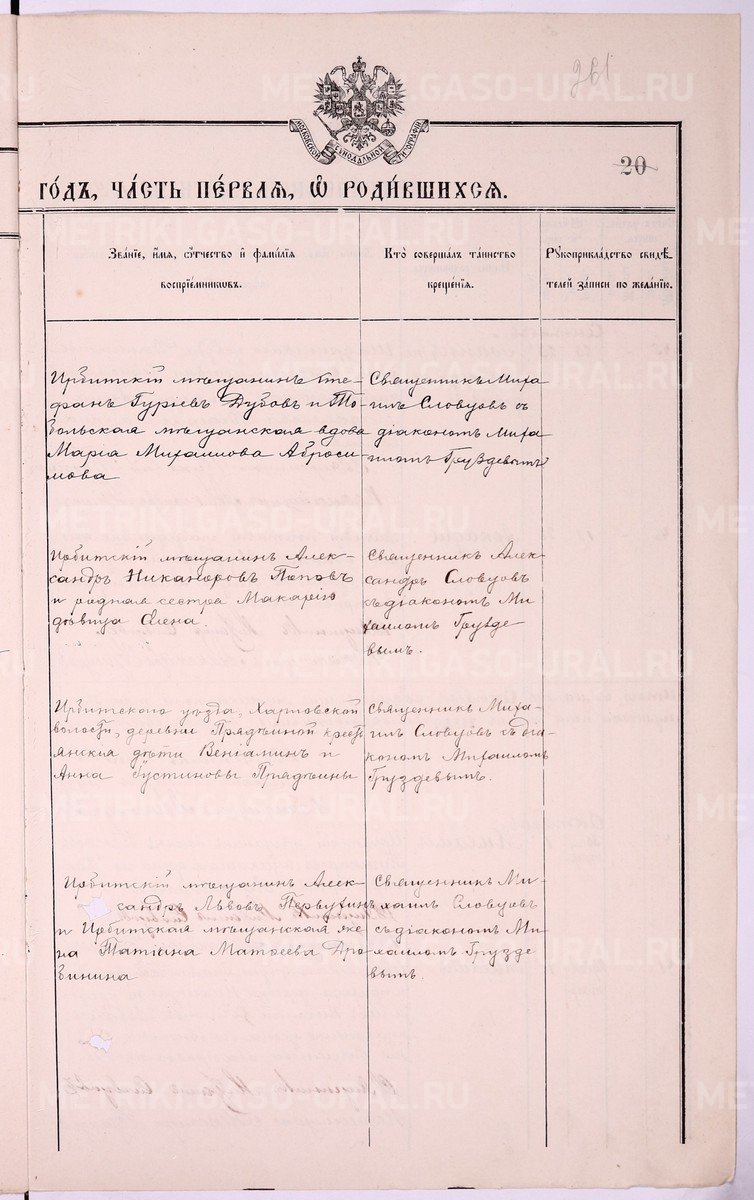 261
МОСКОВСКОЙ СѴНОДАЛЬНОЙ ТИПОГРАФІИ
20
ГОДЪ, ЧАСТЬ ПЕРВАЯ, Ѡ РОДИВШИХСЯ.
Званіе, имя, ѻтчество и фамилія
воспріемниковъ.
Кто совершалъ таинство
крещенія.
Рукоприкладство свидѣ-
телей записи по желанію.
Ирбитскій мѣщанинъ Сте-
фанъ Гуріевъ Дубовъ и То-
больская мѣщанская вдова
Марія Михаилова Аброси-
мова
Священникъ Миха
илъ Словцовъ съ
діакономъ Миха
иломъ Груздевымъ
Ирбитскій мѣщанинъ Алек-
сандръ Никаноровъ Поповъ
и родная сестра Макарію
дѣвица Елена.
Священникъ Алек-
сандръ Словцовъ
съ діакономъ Ми-
хаиломъ Грузде-
вымъ.
Ирбитскаго уѣзда, Харловской
волости, деревни Прядѣиной крест
янскія дѣти Веніаминъ и
Анна Густиновы Прядѣины
Священникъ Миха-
илъ Словцовъ съ діа-
кономъ Михаиломъ
Груздевымъ.
Ирбитскій мѣщанинъ Алек-
сандръ Львовъ Первухинъ
и Ирбитская мѣщанская же-
на Татіана Матѳеева Дро-
зинина
Священникъ Ми-
хаилъ Словцовъ
съ діакономъ Ми-
хаиломъ Грузде
вымъ.
METRIKI.GASO-URAL.RU